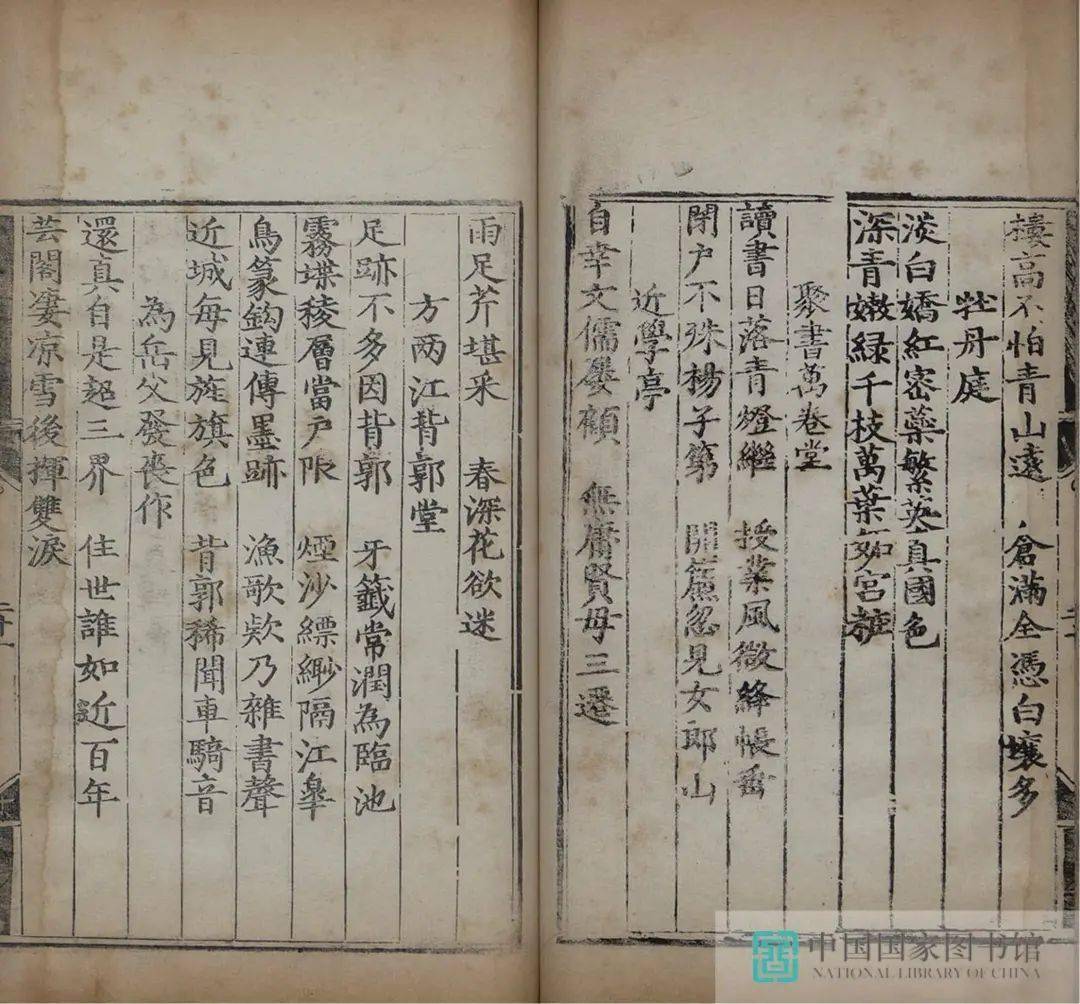 樓高不怕青山遠　倉滿全憑白壤多
牡丹庭
淡白嬌紅密蘂繁英真國色
深青嫩緑千枝萬葉如宮粧
聚書萬卷堂
讀書日落青燈繼　授業風微絳帳垂
閉户不殊楊子第　開簾忽見女郎山
近學亭
自幸文儒屢顧　無庸賢母三遷
雨足芹堪采　春深花欲迷
方两江背郭堂
足跡不多因背郭　牙籤常潤為臨池
霧堞稜層當户限　煙沙縹緲隔江臯
鳥篆鈎連傳墨跡　漁歌欸乃雜書聲
近城每見旌旗色　背郭稀聞車騎音
為岳父發喪作
還真自是超三界　住世誰如近百年
芸閣凄凉雪後揮雙淚
二十一
中国国家图书馆
NATIONAL LIBRARY OF CHINA